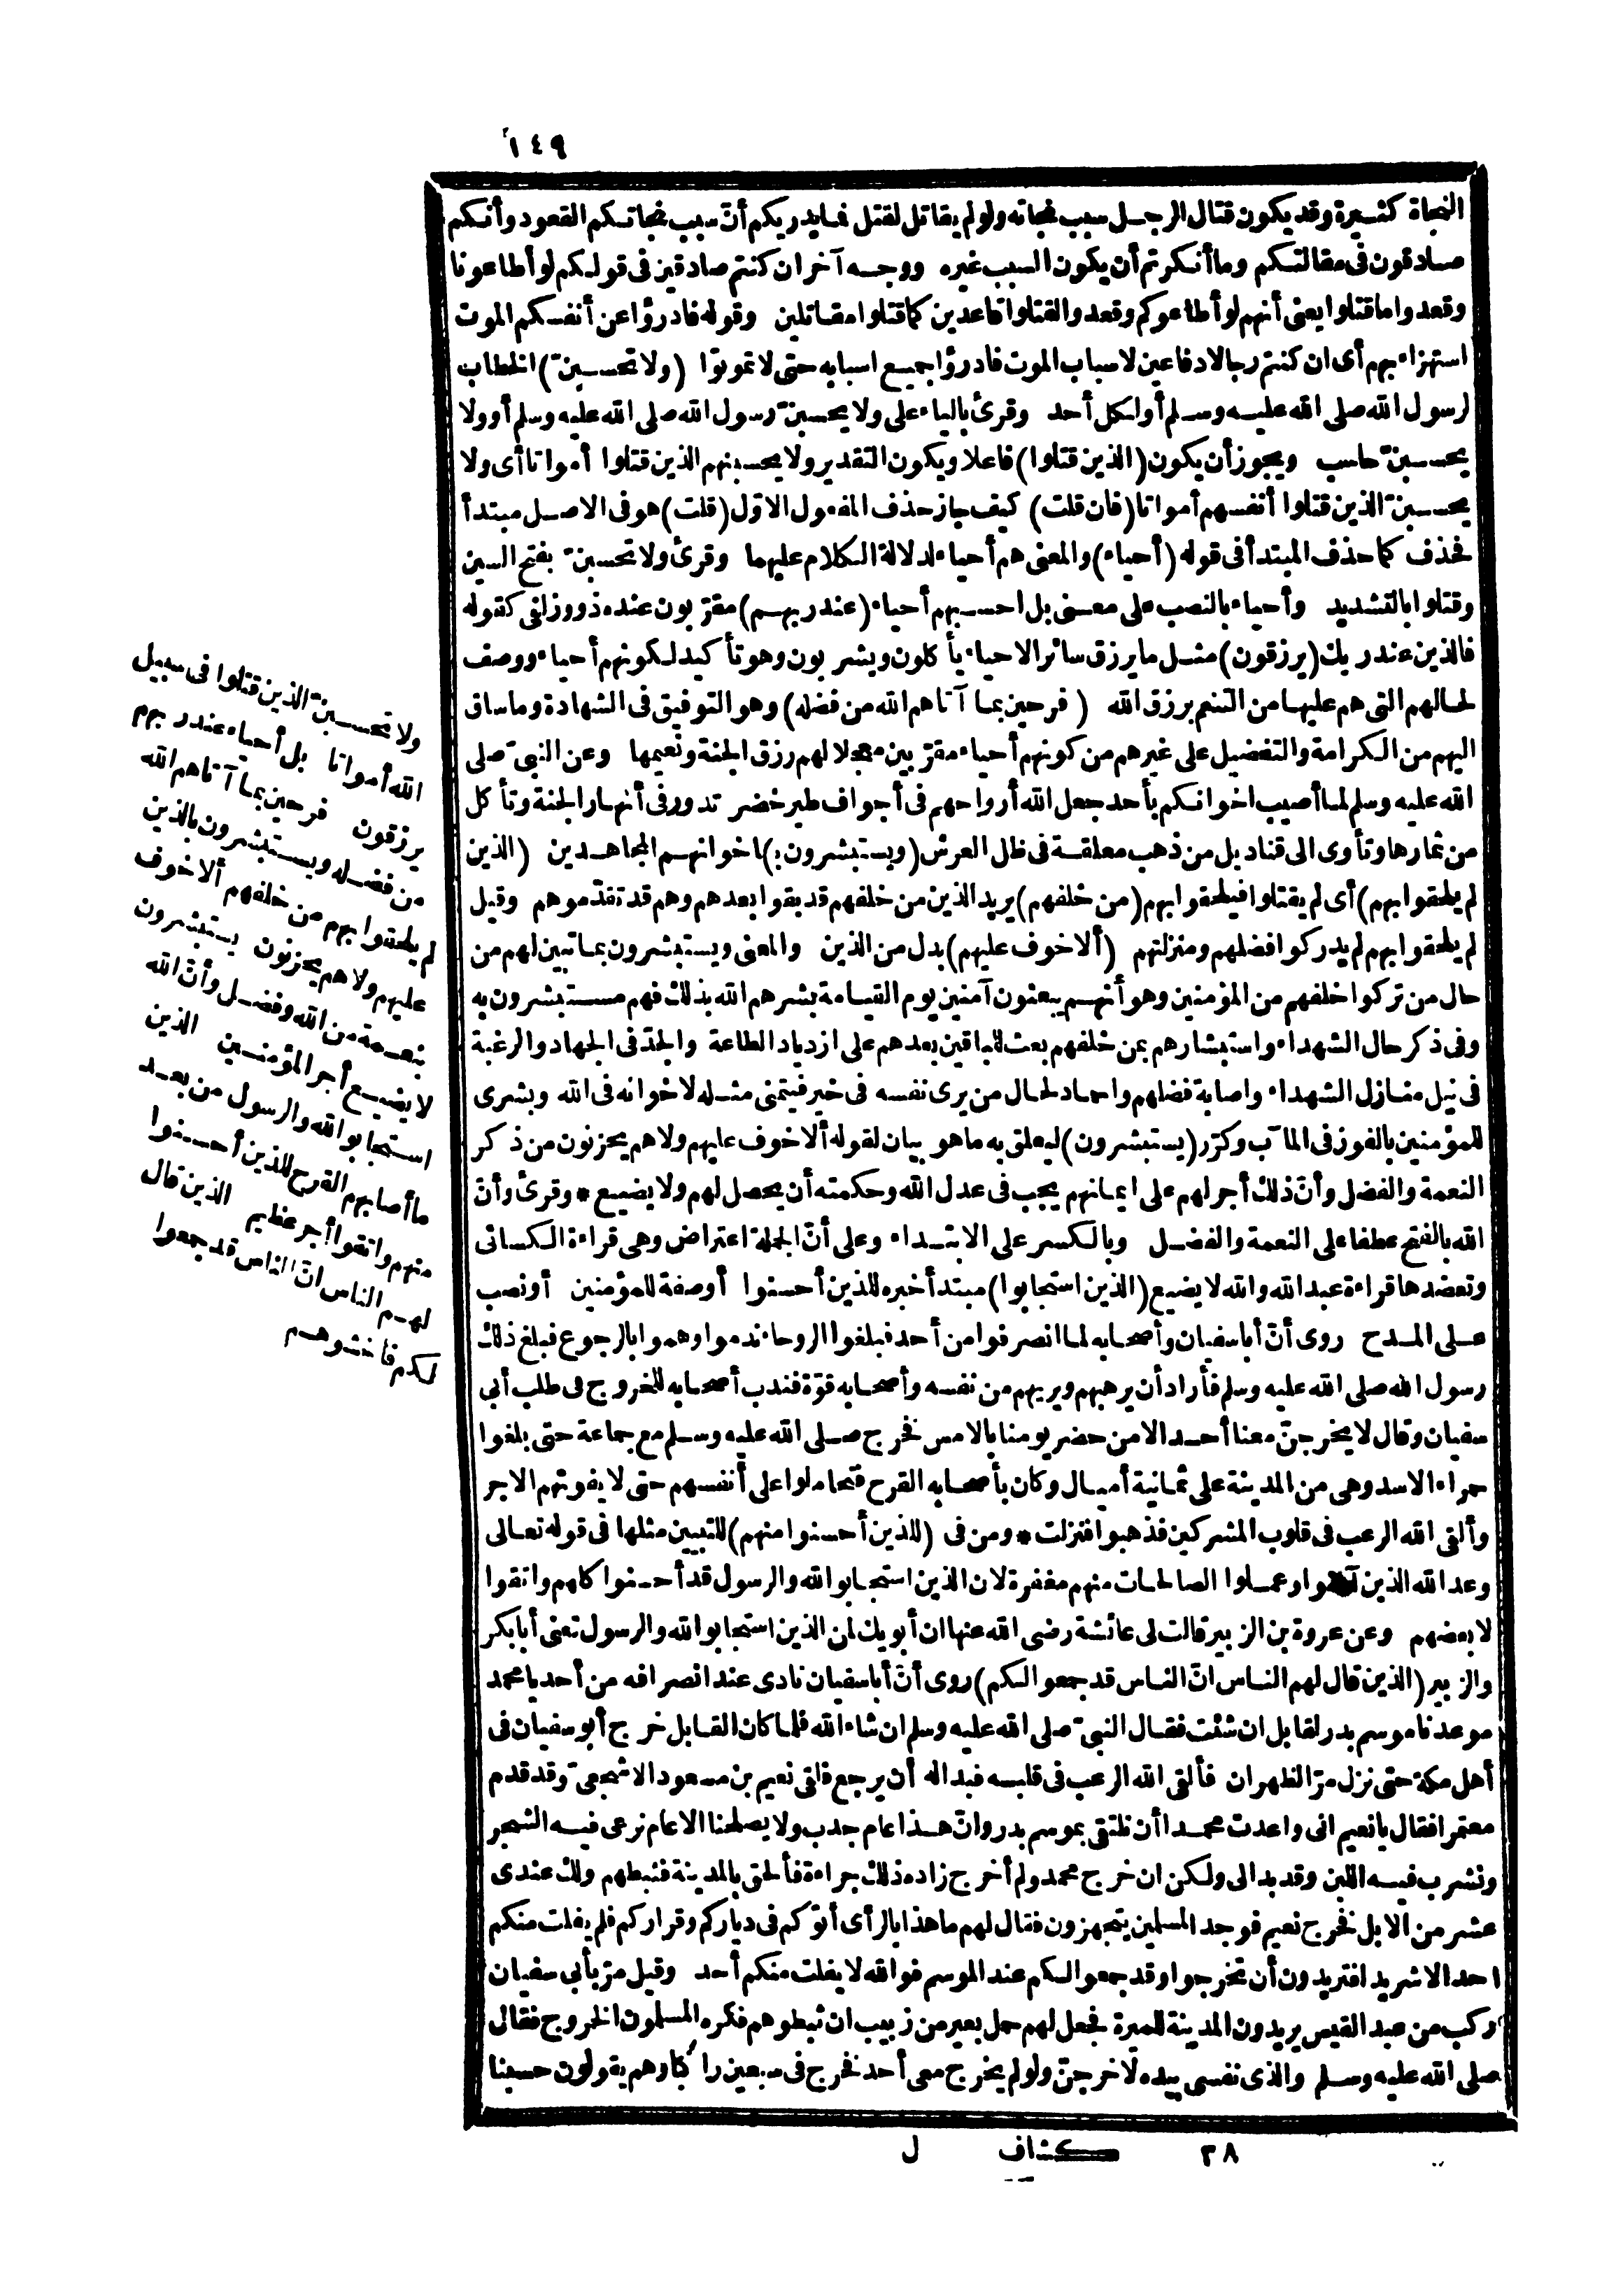 ١٤٩
النجاة كثيرة وقد يكون قتال الرجل سبب نجاته ولو لم يقاتل لقتل فما يدريكم أنّ سبب نجاتكم القعود وأنكم
صادقون فى مقالتكم وما أنكرتم أن يكون السبب غيره ووجه آخر ان كنتم صادقين فى قولكم لو أطاعونا
وقعدوا ما قتلوا يعنى أنهم لو أطاعوكم وقعدوا لقتلوا قاعدين كما قتلوا مقاتلين وقوله فادرؤا عن أنفسكم الموت
استهزاء بهم أى ان كنتم رجالا دفاعين لاسباب الموت فادرؤا جميع اسبابه حتى لا تموتوا (ولا تحسبنّ) الخطاب
لرسول الله صلى الله عليه وسلم أو لكل أحد وقرئ بالياء على ولا يحسبنّ رسول الله صلى الله عليه وسلم أو ولا
يحسبنّ حاسب ويجوز أن يكون (الذين قتلوا) فاعلا ويكون التقدير ولا يحسبنهم الذين قتلوا أمواتا أى ولا
يحسبنّ الذين قتلوا أنفسهم أمواتا (فان قلت) كيف جاز حذف المفعول الاوّل (قلت) هو فى الاصل مبتدأ
فحذف كما حذف المبتدأ فى قوله (أحياء) والمعنى هم أحياء لدلالة الكلام عليهما وقرئ ولا تحسبنّ بفتح السين
وقتلوا بالتشديد وأحياء بالنصب على معنى بل احسبهم أحياء (عند ربهم) مقرّبون عنده ذوو زلفى كقوله
فالذين عند ربك (يرزقون) مثل ما يرزق سائر الاحياء يأكلون ويشربون وهو تأكيد لكونهم أحياء ووصف
لحالهم التى هم عليها من التنعم برزق الله (فرحين بما آتاهم الله من فضله) وهو التوفيق فى الشهادة وما ساق
اليهم من الكرامة والتفضيل على غيرهم من كونهم أحياء مقرّبين معجلا لهم رزق الجنة ونعيمها وعن النبىّ صلى
الله عليه وسلم لما أصيب اخوانكم بأحد جعل الله أرواحهم فى أجواف طير خضر تدور فى أنهار الجنة وتأكل
من ثمارها وتأوى الى قناديل من ذهب معلقة فى ظل العرش (ويستبشرون ب)اخوانهم المجاهدين (الذين
لم يلحقوا بهم) أى لم يقتلوا فيلحقوا بهم (من خلفهم) يريد الذين من خلفهم قد بقوا بعدهم وهم قد تقدّموهم وقيل
لم يلحقوا بهم لم يدركوا فضلهم ومنزلتهم (ألا خوف عليهم) بدل من الذين والمعنى ويستبشرون بما تبين لهم من
حال من تركوا خلفهم من المؤمنين وهو أنهم يبعثون آمنين يوم القيامة بشرهم الله بذلك فهم مستبشرون به
وفى ذكر حال الشهداء واستبشارهم بمن خلفهم بعث للباقين بعدهم على ازدياد الطاعة والجدّ فى الجهاد والرغبة
فى نيل منازل الشهداء واصابة فضلهم واحماد لحال من يرى نفسه فى خير فيتمنى مثله لاخوانه فى الله وبشرى
للمؤمنين بالفوز فى المآب وكرّر (يستبشرون) ليعلق به ما هو بيان لقوله ألا خوف عليهم ولا هم يحزنون من ذكر
النعمة والفضل وأنّ ذلك أجر لهم على ايمانهم يجب فى عدل الله وحكمته أن يحصل لهم ولا يضيع * وقرئ وأنّ
الله بالفتح عطفا على النعمة والفضل وبالكسر على الابتداء وعلى أنّ الجملة اعتراض وهى قراءة الكسائى
وتعضدها قراءة عبد الله والله لا يضيع (الذين استجابوا) مبتدأ خبره للذين أحسنوا أو صفة للمؤمنين أو نصب
على المدح روى أنّ أبا سفيان وأصحابه لما انصرفوا من أحد فبلغوا الروحاء ندموا وهموا بالرجوع فبلغ ذلك
رسول الله صلى الله عليه وسلم فأراد أن يرهبهم ويريهم من نفسه وأصحابه قوّة فندب أصحابه للخروج فى طلب أبى
سفيان وقال لا يخرجنّ معنا أحد الا من حضر يومنا بالامس فخرج صلى الله عليه وسلم مع جماعة حتى بلغوا
حمراء الاسد وهى من المدينة على ثمانية أميال وكان بأصحابه القرح فتحاملوا على أنفسهم حتى لا يفوتهم الاجر
وألقى الله الرعب فى قلوب المشركين فذهبوا فنزلت * ومن فى (للذين أحسنوا منهم) للتبيين مثلها فى قوله تعالى
وعد الله الذين آمنوا وعملوا الصالحات منهم مغفرة لان الذين استجابوا لله والرسول قد أحسنوا كلهم واتقوا
لا بعضهم وعن عروة بن الزبير قالت لى عائشة رضى الله عنها ان أبويك لمن الذين استجابوا لله والرسول تعنى أبا بكر
والزبير (الذين قال لهم الناس انّ الناس قد جمعوا لكم) روى أنّ أبا سفيان نادى عند انصرافه من أحد يا محمد
موعدنا موسم بدر لقابل ان شئت فقال النبىّ صلى الله عليه وسلم ان شاء الله فلما كان القابل خرج أبو سفيان فى
أهل مكة حتى نزل مرّ الظهران فألقى الله الرعب فى قلبه فبدا له أن يرجع فلقى نعيم بن مسعود الاشجعىّ وقد قدم
معتمرا فقال يا نعيم انى واعدت محمدا أن نلتقى بموسم بدر وانّ هذا عام جدب ولا يصلحنا الا عام نرعى فيه الشجر
ونشرب فيه اللبن وقد بدا لى ولكن ان خرج محمد ولم أخرج زاده ذلك جراءة فألحق بالمدينة فثبطهم ولك عندى
عشر من الابل فخرج نعيم فوجد المسلمين يتجهزون فقال لهم ما هذا بالرأى أتوكم فى دياركم وقراركم فلم يفلت منكم
احد الا شريد افتريدون أن تخرجوا وقد جمعوا لكم عند الموسم فوالله لا يفلت منكم أحد وقيل مرّ بأبى سفيان
ركب من عبد القيس يريدون المدينة للميرة فجعل لهم حمل بعير من زبيب ان ثبطوهم فكره المسلمون الخروج فقال
صلى الله عليه وسلم والذى نفسى بيده لاخرجنّ ولو لم يخرج معى أحد فخرج فى سبعين راكبا وهم يقولون حسبنا
ولا تحسبنّ الذين قتلوا فى سبيل
الله أمواتا بل أحياء عند ربهم
يرزقون فرحين بما آتاهم الله
من فضله ويستبشرون بالذين
لم يلحقوا بهم من خلفهم ألا خوف
عليهم ولا هم يحزنون يستبشرون
بنعمة من الله وفضل وأنّ الله
لا يضيع أجر المؤمنين الذين
استجابوا لله والرسول من بعد
ما أصابهم القرح للذين أحسنوا
منهم واتقوا أجر عظيم الذين قال
لهم الناس انّ الناس قد جمعوا
لكم فاخشوهم
٣٨ كشاف ل